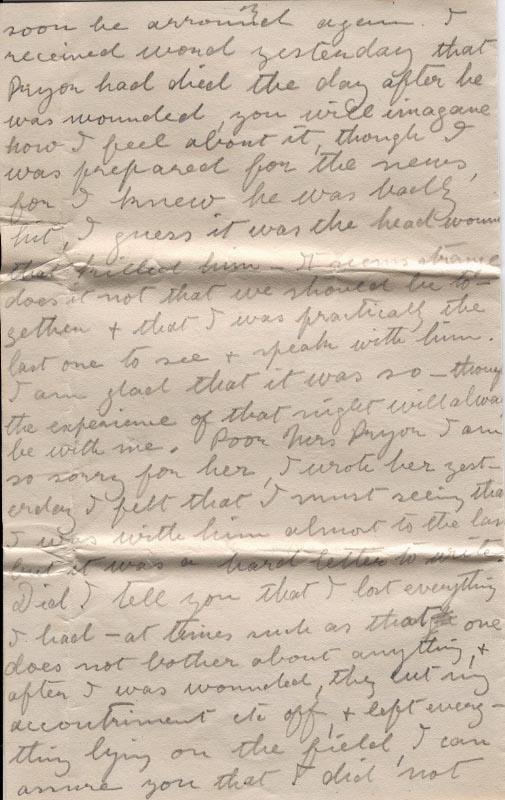 3
soon be arround again. I
received word yesterday that
Pryor had died the day after he
was wounded, you will imagane
how I feel about it, though I
was prepared for the news,
for I knew he was badly
hit, I guess it was the head wound
that killed him – It seems strange
does it not that we should be to-
gether + that I was practically the
last one to see + speak with him.
I am glad that it was so – though
the experience of that night will alwa
be with me. Poor Mrs Pryor I am
so sorry for her, I wrote her yest-
erday I felt that I must seeing tha
I was with him almost to the las
but it was a hard letter to write.
Did I tell you that I lost everything
I had – at times such as that one
does not bother about anything, +
after I was wounded, they cut my
accoutriment etc off, + left every-
thing lying on the field, I can
assure you that I did not